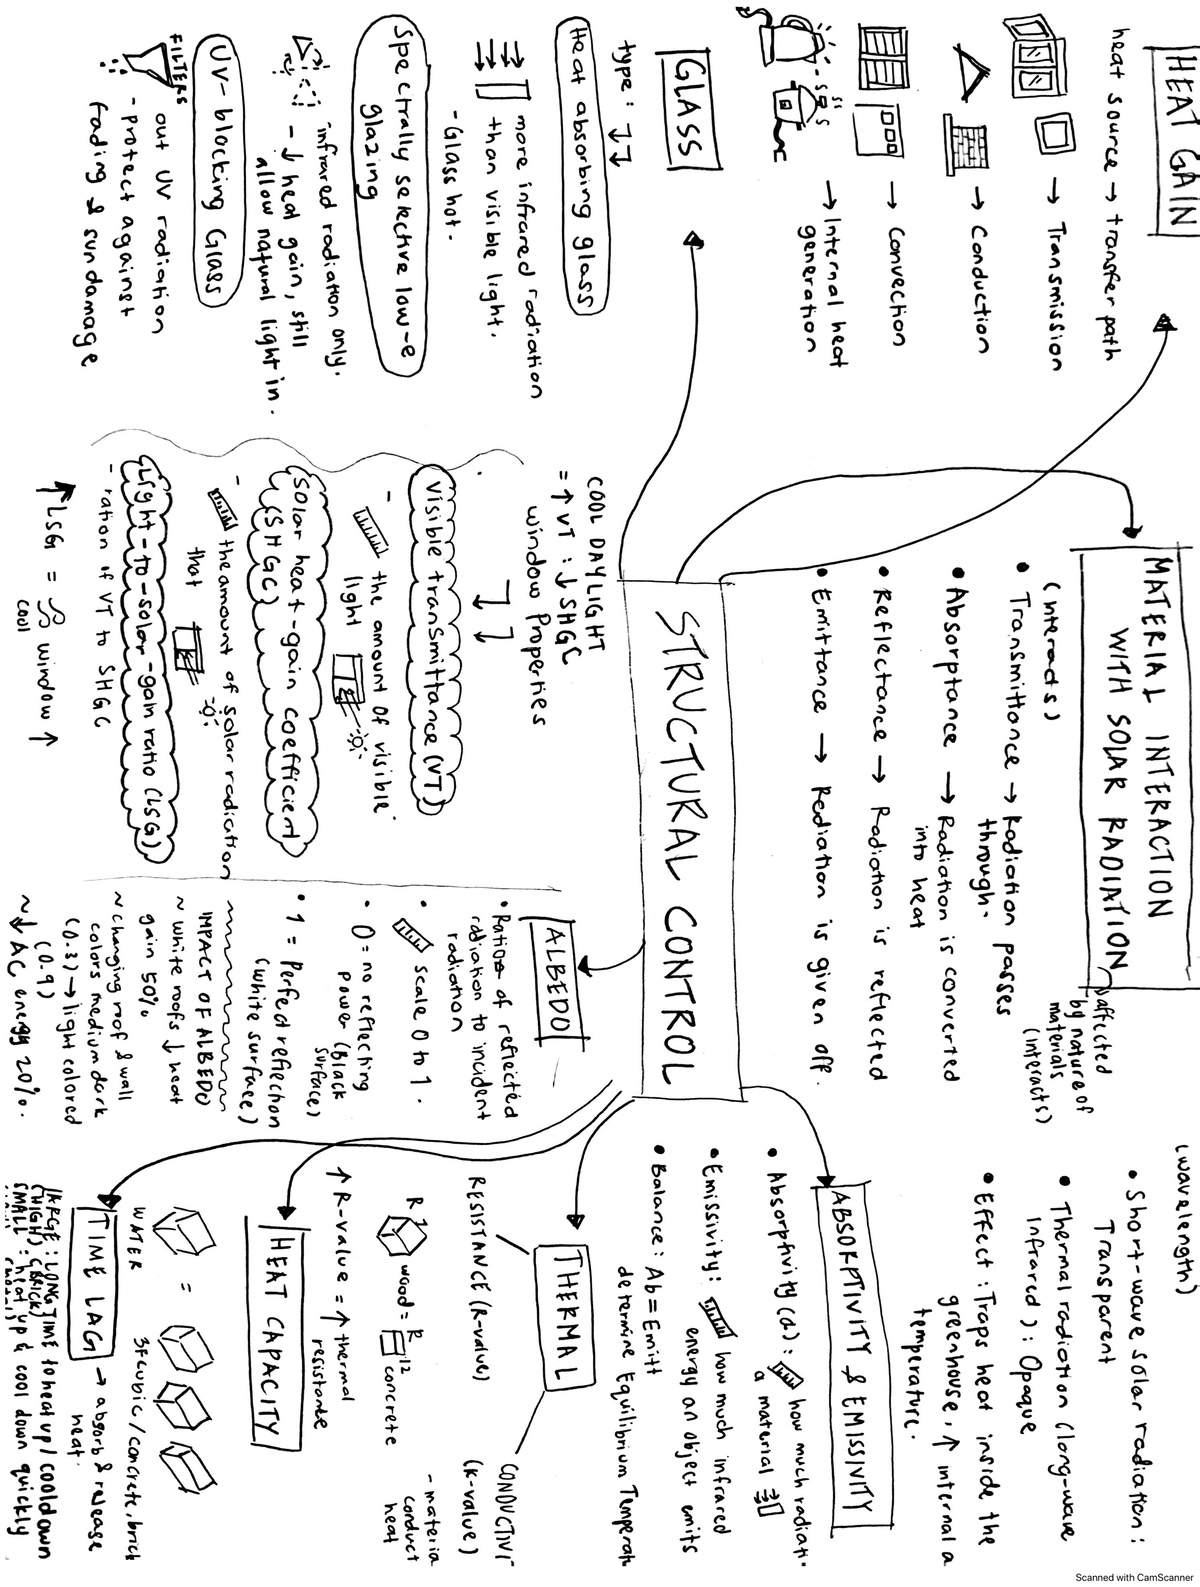 HEAT GAIN
heat source → transfer path
→ Transmission
→ Conduction
→ Convection
→ Internal heat
generation
GLASS
type: ↓↓
Heat absorbing glass
more infrared radiation
than visible light.
- Glass hot.
Spectrally selective low-e
glazing
infrared radiation only.
- ↓ heat gain, still
allow natural light in.
UV-blocking Glass
FILTERS
out UV radiation
- protect against
fading & sun damage
STRUCTURAL CONTROL
MATERIAL INTERACTION
WITH SOLAR RADIATION
affected
by nature of
materials
(interacts)
(interacts)
• Transmittance → Radiation passes
through.
• Absorptance → Radiation is converted
into heat
• Reflectance → Radiation is reflected
• Emittance → Radiation is given off.
COOL DAYLIGHT
= ↑ VT : ↓ SHGC
window Properties
Visible transmittance (VT)
- the amount of visible
light
Solar heat-gain coefficient
(SHGC)
- the amount of solar radiation
that
Light-to-solar-gain ratio (LSG)
- ration of VT to SHGC
↑ LSG = window ↑
cool
ALBEDO
• Ratio of reflected
radiation to incident
radiation
• scale 0 to 1.
• 0 = no reflecting
power (black
surface)
• 1 = Perfect reflection
(white surface)
IMPACT OF ALBEDO
~ white roofs ↓ heat
gain 50%
~ changing roof & wall
colors medium dark
(0.3) → light colored
(0.9)
~ ↓ AC energy 20%.
(wavelength)
• Short-wave solar radiation:
Transparent
• Thermal radiation (long-wave
infrared): Opaque
• Effect: Traps heat inside the
greenhouse, ↑ internal a
temperature.
ABSORPTIVITY & EMISSIVITY
• Absorptivity (a): how much radiati
a material
• Emissivity: how much infrared
energy an object emits
• Balance: Ab = Emitt
determine Equilibrium Temperat
THERMAL
RESISTANCE (R-value)
R 1" wood = R 12" concrete
↑ R-value = ↑ thermal
resistance
CONDUCTIVI
(k-value)
- materia
conduct
heat
HEAT CAPACITY
=
WATER
3Fcubic/concrete, brick
TIME LAG → absorb & release
heat.
LARGE: LONG TIME to heat up/cooldown
(HIGH) (BRICK)
SMALL: heat up & cool down quickly
Scanned with CamScanner